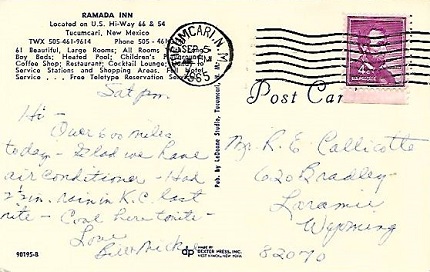 RAMADA INN
Located on U.S. Hi-Way 66 & 54
Tucumcari, New Mexico
TWX 505-461-9614 Phone 505 - 461-
61 Beautiful, Large Rooms; All Rooms
Day Beds; Heated Pool; Children's Playground;
Coffee Shop; Restaurant; Cocktail Lounge;
Service Stations and Shopping Areas. Full Hotel
Service . . . Free Teletype Reservation Service
TUCUMCARI, N.M.
SEP 5
PM
1965
4¢
Post Car
Sat pm.
Hi -
Over 600 miles
today - Glad we have
air conditioner - Had
2 1/2 in. rain in K.C. last
nite - Cool here tonite -
Love
Mr. R. E. Callicotte
620 Bradley
Laramie
Wyoming
82070
Pub. by LeDeane Studio, Tucumcari, N. Mex.
90195-B
dp
MADE BY
DEXTER PRESS, INC.
WEST NYACK, NEW YORK